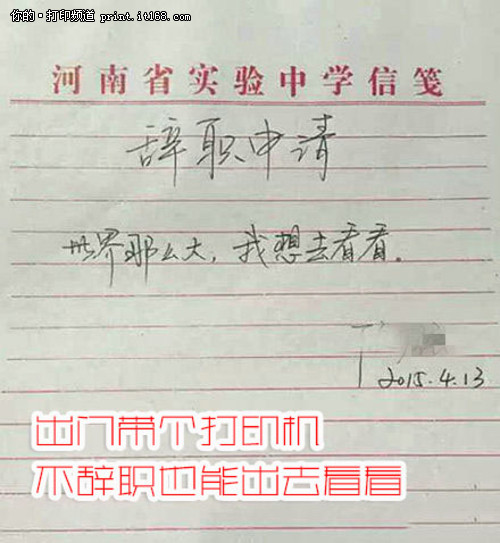 你的·打印频道 print.it168.com
河南省实验中学信笺
辞职申请
世界那么大，我想去看看。
2015.4.13
出门带个打印机
不辞职也能出去看看